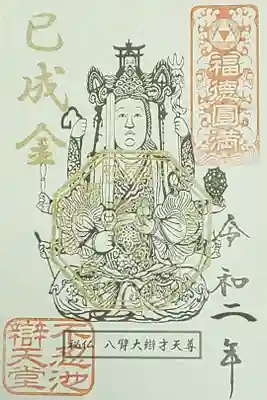 福德圓滿
令和二年
巳成金
秘仏 八臂大辯才天尊
不忍池
辯天堂